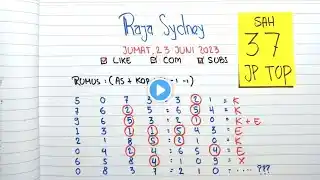 Raja Sydney
JUMAT, 23 JUNI 2023
LIKE COM SUBS
SAH
37
JP TOP
RUMUS : (AS + KOP -1 -1)
5 0 7 3 = 3 2 1 = K
7 6 2 5 = 6 5 4 = K
9 6 5 3 = 2 1 0 = K + E
3 1 2 1 = 5 4 3 = E
2 1 8 5 = 2 1 0 = K
0 4 2 4 = 6 5 4 = E
6 5 8 4 = 1 0 9 = X
0 8 3 7 = 2 1 0 - .... ???